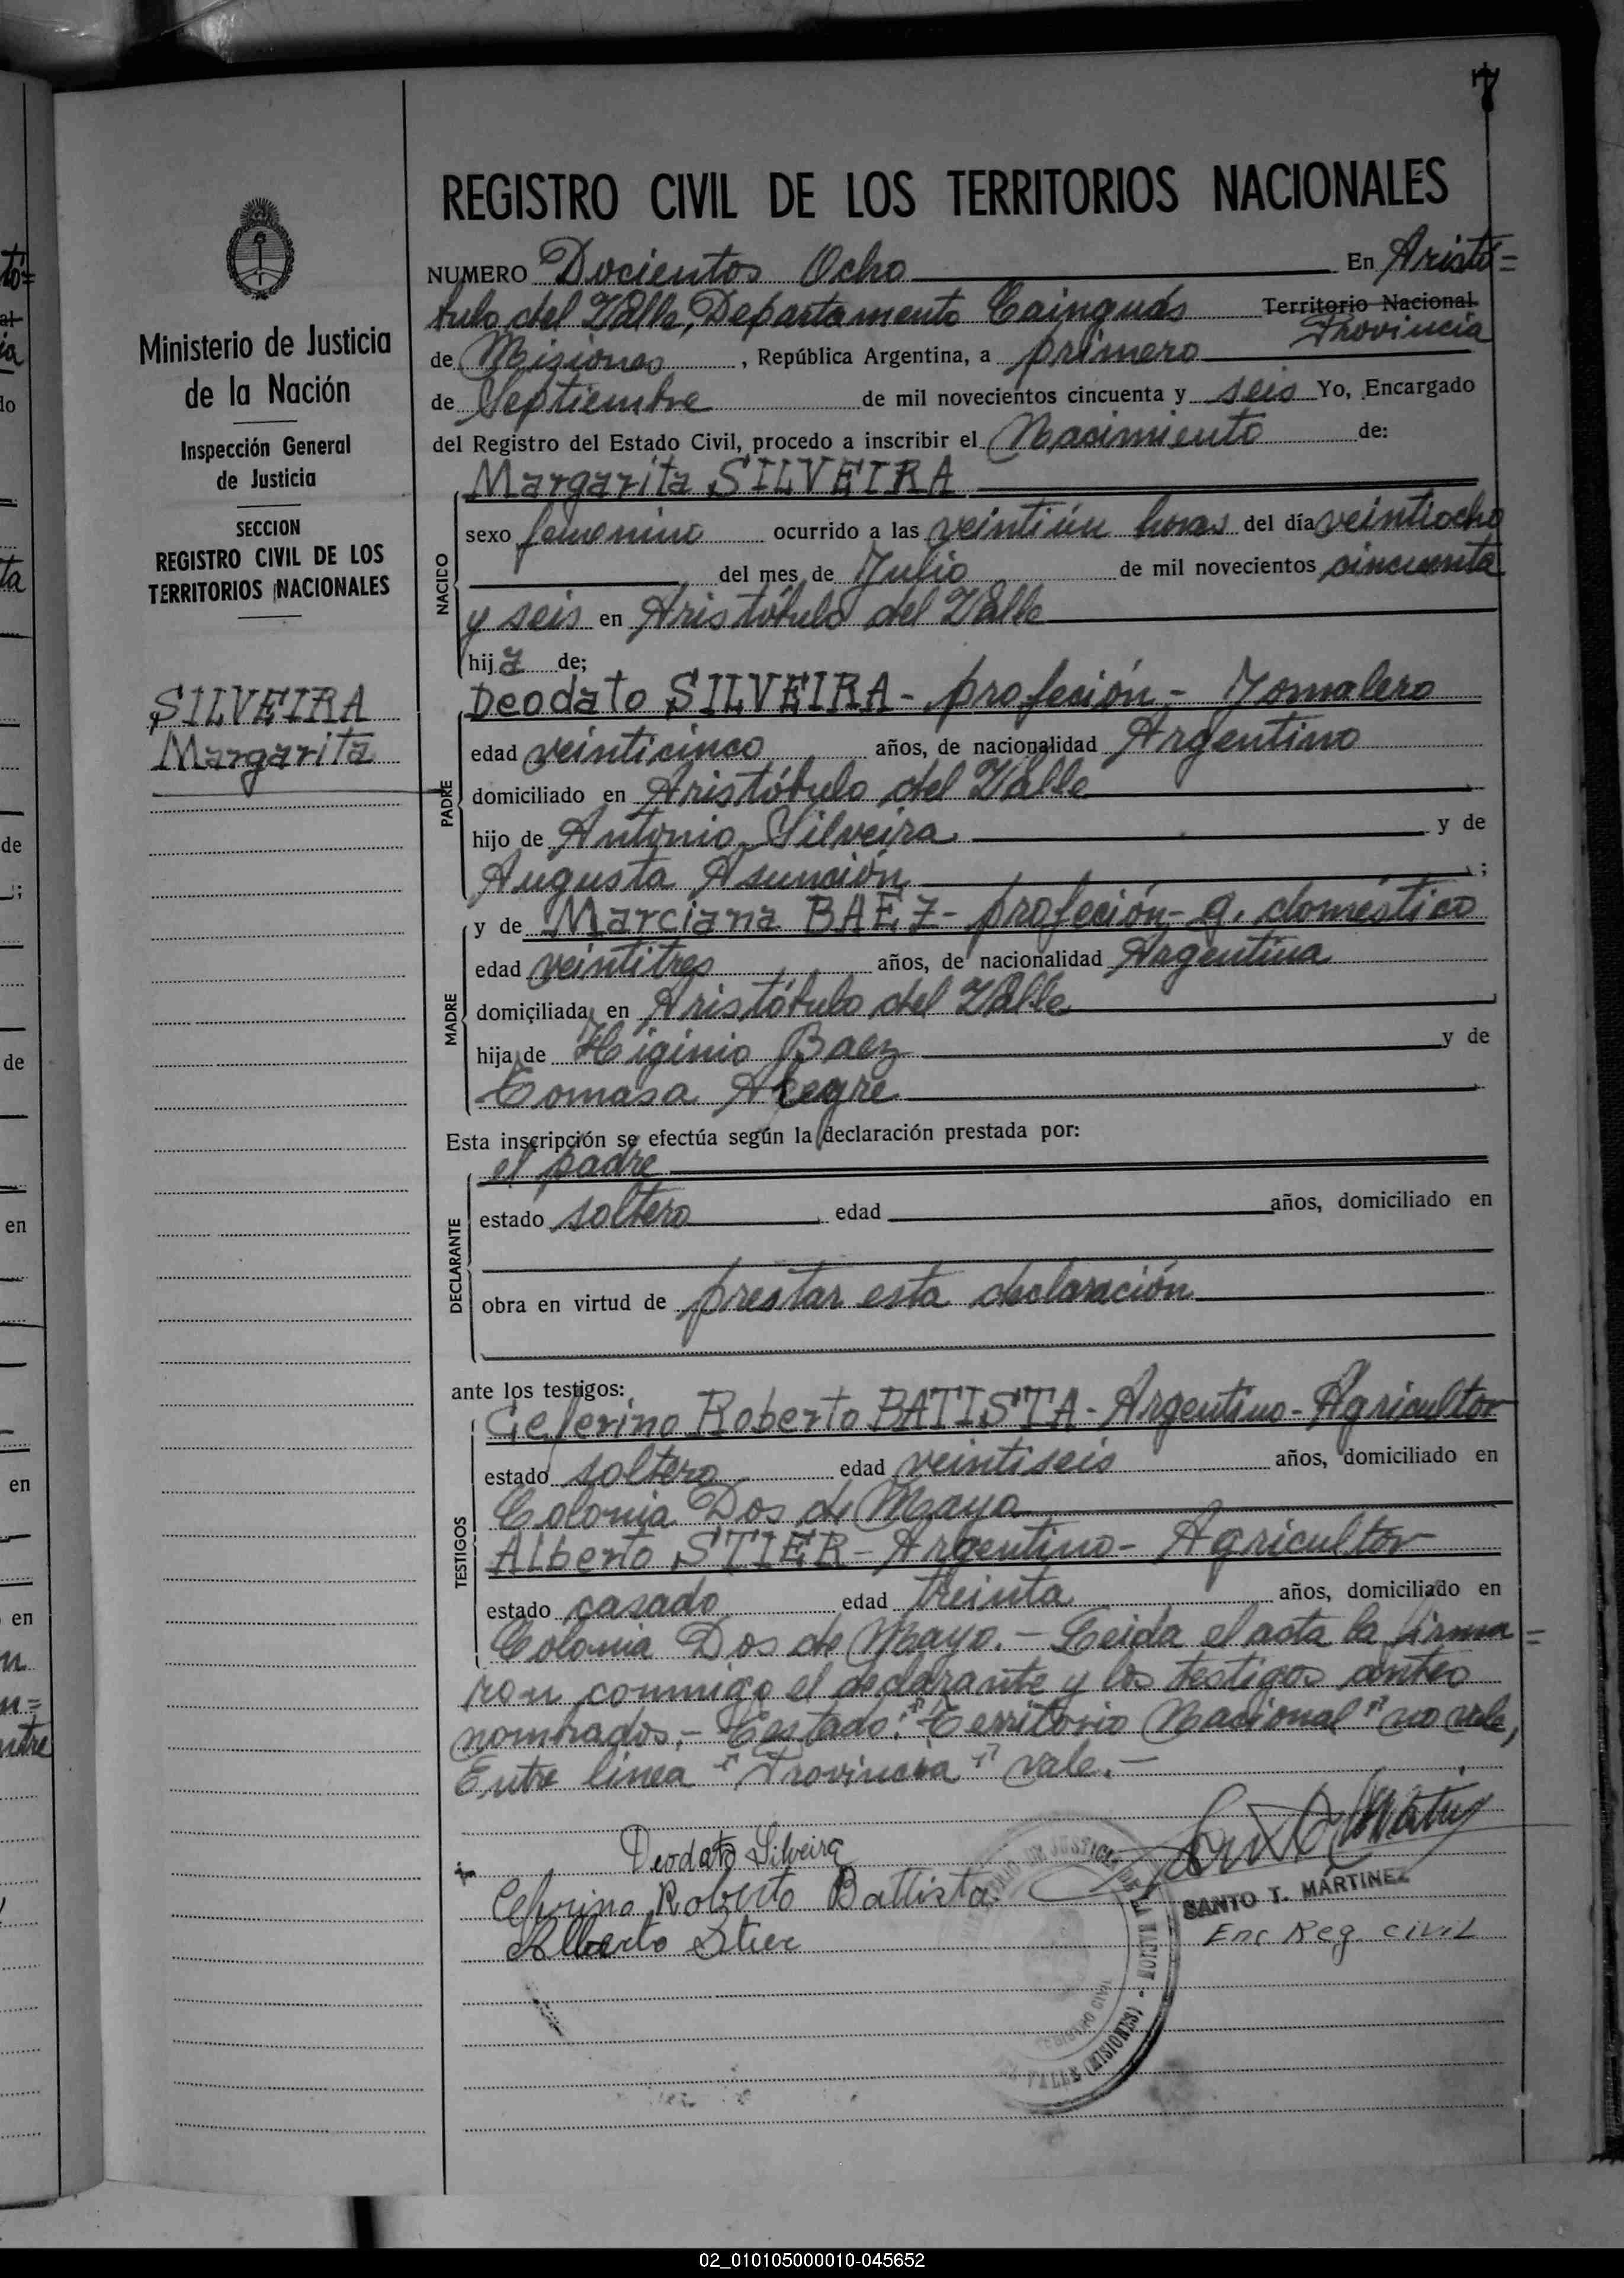 7
REGISTRO CIVIL DE LOS TERRITORIOS NACIONALES
NUMERO Docientos Ocho En Aristó=
bulo del Valle, Departamento Cainguás Territorio Nacional
Provincia
de Misiones, República Argentina, a primero
de Septiembre de mil novecientos cincuenta y seis Yo, Encargado
del Registro del Estado Civil, procedo a inscribir el Nacimiento de:
Margarita SILVEIRA
NACIDO
sexo femenino ocurrido a las veintiún horas del día veintiocho
del mes de Julio de mil novecientos cincuenta
y seis en Aristóbulo del Valle
hija de;
Deodato SILVEIRA - profeción - Jornalero
PADRE
edad veinticinco años, de nacionalidad Argentino
domiciliado en Aristóbulo del Valle
hijo de Antonio Silveira y de
Augusta Asunción ;
y de Marciana BAEZ - profeción - q. doméstico
MADRE
edad veintitres años, de nacionalidad Argentina
domiciliada en Aristóbulo del Valle
hija de Higinio Baez y de
Tomasa Alegre
Esta inscripción se efectúa según la declaración prestada por:
el padre
DECLARANTE
estado soltero edad años, domiciliado en
obra en virtud de prestar esta declaración
ante los testigos:
Ceferino Roberto BATISTA - Argentino - Agricultor
TESTIGOS
estado soltero edad veintiseis años, domiciliado en
Colonia Dos de Mayo
Alberto STIER - Argentino - Agricultor
estado casado edad treinta años, domiciliado en
Colonia Dos de Mayo. - Leida el acta la firma=
ron conmigo el declarante y los testigos antes
nombrados. - Testado: "Territorio Nacional" no vale,
Entre linea "Provincia" vale. -
Deodato Silveira
Ceferino Roberto Battista
Alberto Stier
SANTO T. MARTINEZ
Enc Reg. civil
JUSTICIA DE LA NACION - VALLE (MISIONES)
REGISTRO CIVIL
Ministerio de Justicia
de la Nación
Inspección General
de Justicia
SECCION
REGISTRO CIVIL DE LOS
TERRITORIOS NACIONALES
SILVEIRA
Margarita
02_010105000010-045652